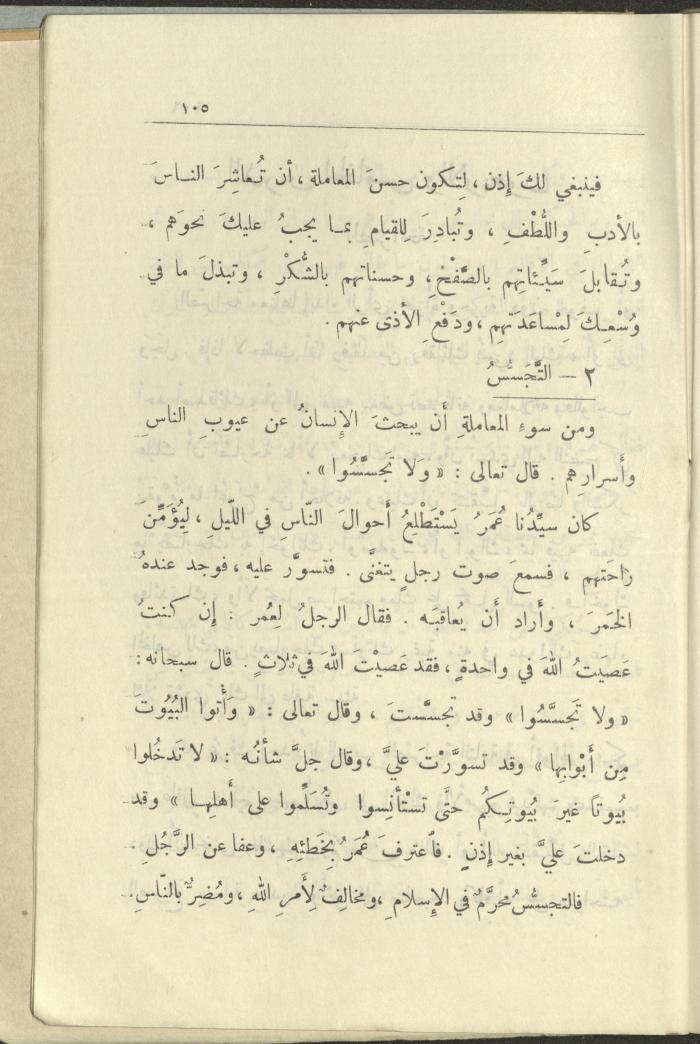 ١٠٥
فينبغي لكَ إِذن ، لِتكون حسنَ المعاملة ، أن تُعاشِرَ الناسَ
بالأدبِ واللُّطْفِ ، وتُبادِرَ لِلقيامِ بما يجبُ عليكَ نحوَهم ،
وتُقابلَ سَيِّئاتِهم بالصَّفْحِ ، وحسناتهم بالشُّكْرِ ، وتبذلَ ما في
وُسْعِكَ لِمْساعَدَتهِم ، ودَفْعِ الأذى عنهم .
٢ — التَّجَسُّسُ
ومن سوءِ المعاملةِ أَن يبحثَ الإِنسانُ عن عيوبِ الناسِ
وأَسرارِهم . قال تعالى : « وَلَا تَجَسَّسُوا » .
كان سيِّدُنا عُمَرُ يَسْتَطْلِعُ أَحوالَ النّاسِ في اللّيلِ ، لِيُؤَمِّنَ
رَاحَتهم ، فسمعَ صوت رجلٍ يتغنَّى . فتسوَّر عليه ، فوجد عندهُ
الخمَرَ ، وأَراد أَن يُعاقبَه . فقال الرجلُ لِعُمر : إِن كنتُ
عَصَيَتُ اللهَ في واحدةٍ ، فقد عَصيْتَ اللهَ في ثلاثٍ . قال سبحانه :
« ولا تَجسَّسُوا » وقد تجسَّستَ ، وقال تعالى : « وَأْتوا البُيُوتَ
مِن أَبْوابِها » وقد تسوَّرْتَ عليَّ ، وقال جلَّ شأنُه : « لا تَدخُلوا
بُيوتاً غيرَ بُيوتِكُم حتَّى تسْتأنِسوا وتُسَلِّموا على أَهلِها » وقد
دخلتَ عليَّ بغير إِذنٍ . فاعترفَ عُمَرُ بِخَطئِهِ ، وعفا عن الرَّجُلِ .
فالتجسُّسُ محرَّمٌ في الإِسلامِ ، ومخالِفٌ لِأَمرِ اللهِ ، ومُضِرٌّ بالنّاسِ .